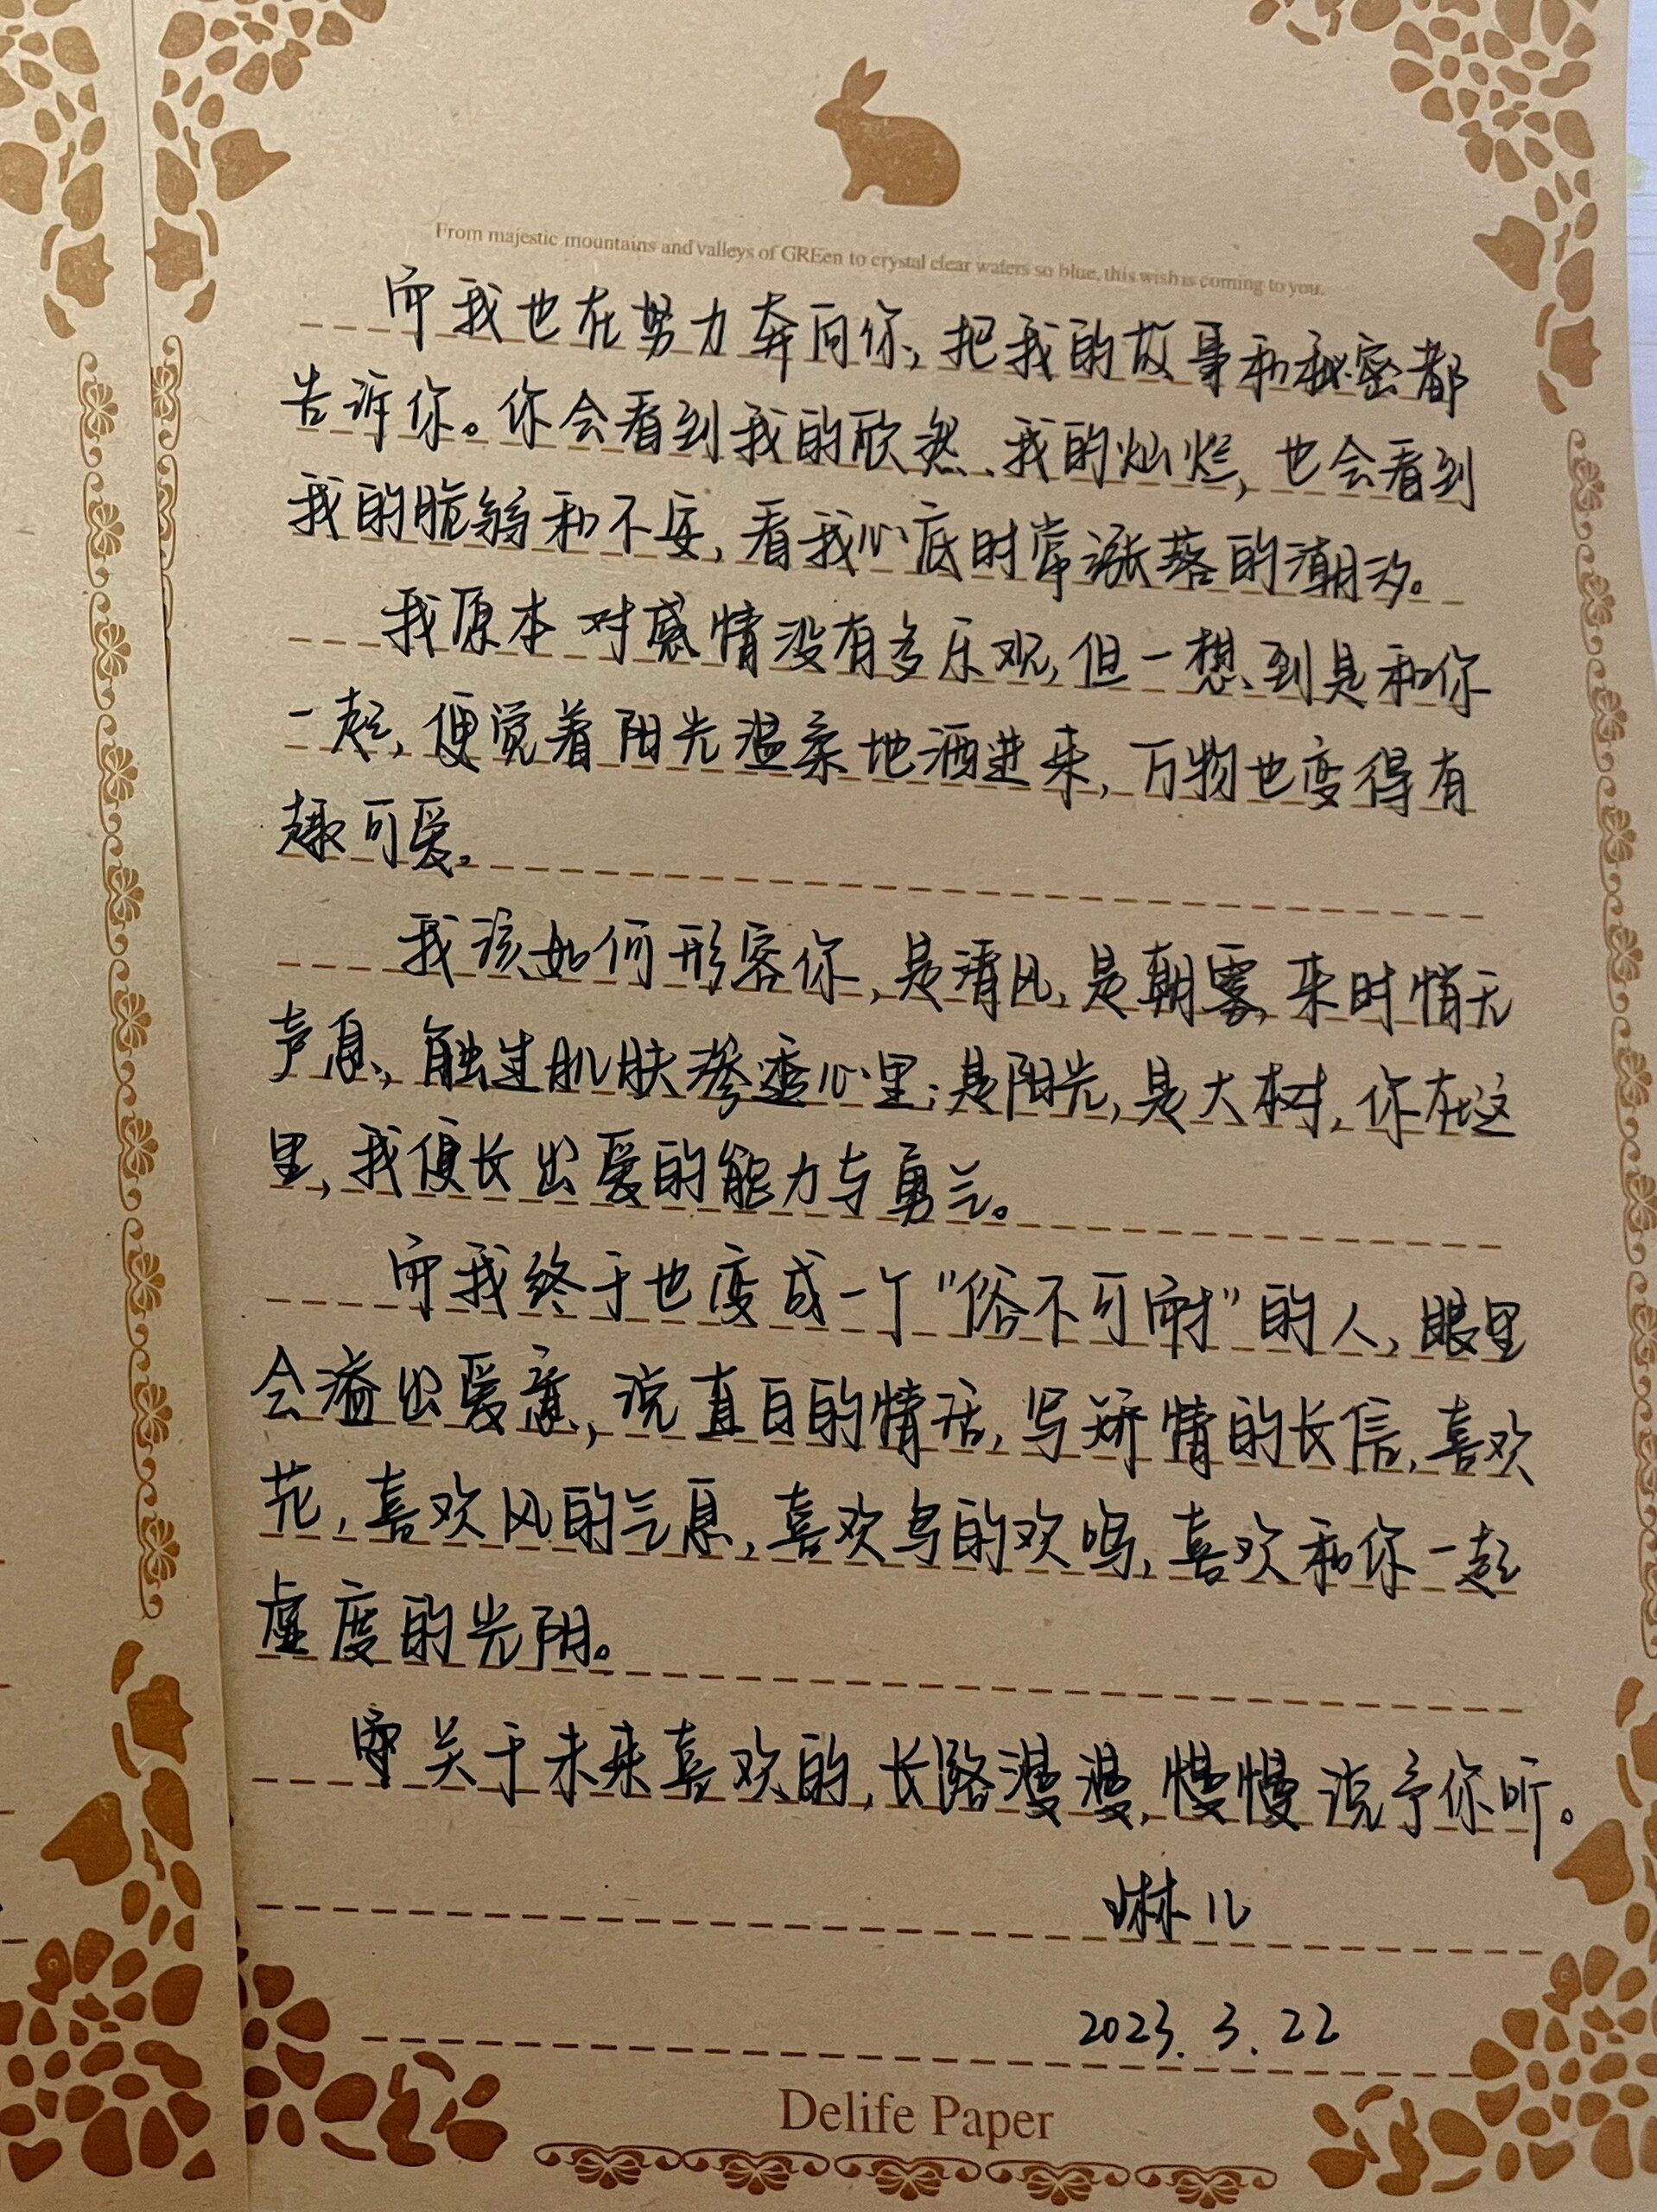 From majestic mountains and valleys of GREen to crystal clear waters so blue, this wish is coming to you.
而我也在努力奔向你,把我的故事和秘密都
告诉你。你会看到我的欣然、我的灿烂,也会看到
我的脆弱和不安,看我心底时常涨落的潮汐。
我原本对感情没有多乐观,但一想到是和你
一起,便觉着阳光温柔地洒进来,万物也变得有
趣可爱。
我该如何形容你,是清风,是朝雾,来时悄无
声息,触过肌肤渗透心里;是阳光,是大树,你在这
里,我便长出爱的能力与勇气。
而我终于也变成一个"俗不可耐"的人,眼里
会溢出爱意,说直白的情话,写矫情的长信,喜欢
花,喜欢风的气息,喜欢鸟的欢鸣,喜欢和你一起
虚度的光阴。
关于未来喜欢的,长路漫漫,慢慢说予你听。
琳儿
2023.3.22
Delife Paper